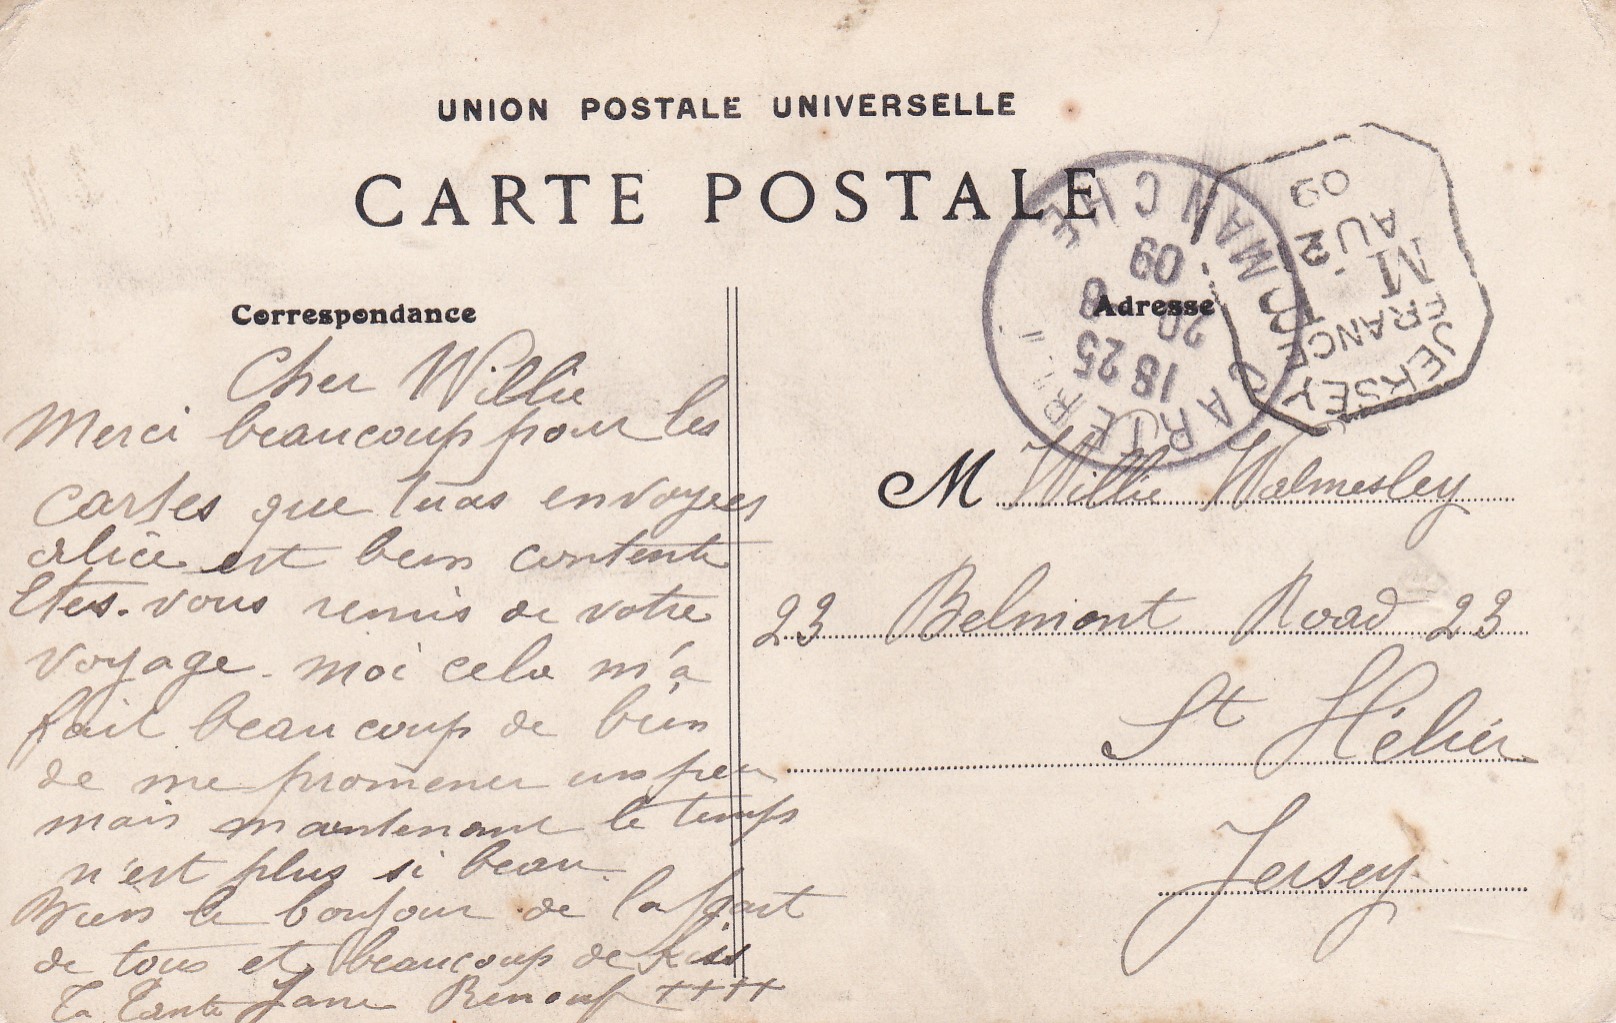 UNION POSTALE UNIVERSELLE
CARTE POSTALE
Correspondance
Cher Willie
Merci beaucoup pour les
cartes que tu as envoyees
alice est bien contente
Etes-vous remis de votre
voyage. moi cela m'a
fait beaucoup de bien
de me promener un peu
mais maintenant le temps
n'est plus si beau.
Bien le bonjour de la part
de tous et beaucoup de kiss
Ta Tante Jane Renouf ++++
Adresse
M Willie Walmesley
23 Belmont Road 23
St Hélier
Jersey
CARTERET MANCHE
18 25
20 8
09
JERSEY
FRANCE
M
AU 2
09